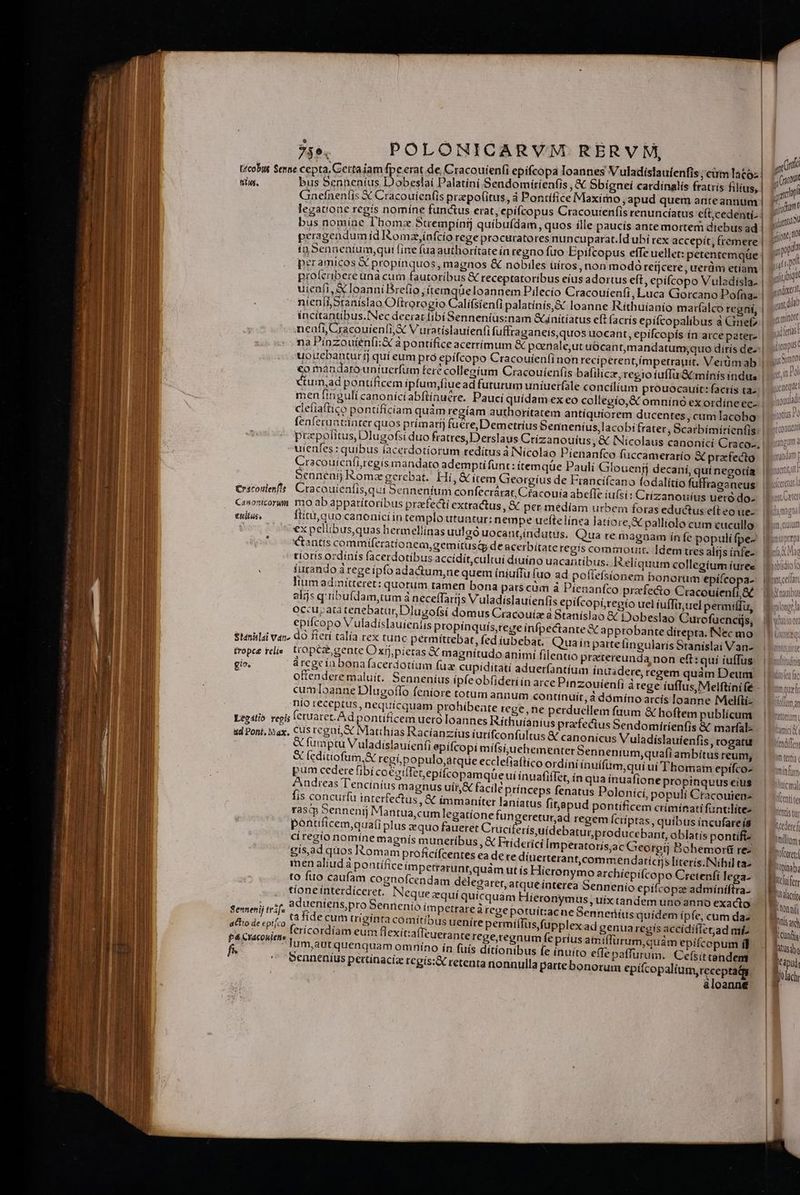 750. POLONICARVM RERVM,
Iacobus Senne cepta. Certa iam spe erat de Cracouiensi episcopa Ioannes Vuladislauiensis, cùm Iaco-
nius. bus Senneníus Dobeslai Palatini Sendomiriensis, & Sbignei cardinalis fratris filius,
Gnesnensis & Cracouiensis præpositus, à Pontifice Maximo, apud quem ante annum
legatione regis nomine functus erat, episcopus Cracouiensis renunciatus est, cedenti-
bus nomine Thomæ Strempinij quibusdam, quos ille paucis ante mortem diebus ad
peragendum id Romæ, inscio rege procuratores nuncuparat. Id ubi rex accepit, fremere
in Sennenium, qui sine sua authoritate in regno suo Episcopus esse uellet: petentemque
per amicos & propinquos, magnos & nobiles uiros, non modò reijcere, uerùm etiam
proscribere unà cum fautoribus & receptatoribus eius adortus est, episcopo Vuladisla-
uiensi, & Ioanni Bresio, itemque Ioannem Pilecio Cracouiensi, Luca Gorcano Posna-
niensi, Stanislao Ostrorogio Calissiensi palatinis, & Ioanne Rithuianio marsalco regni,
incitantibus. Nec deerat sibi Sennenius: nam & initiatus est sacris episcopalibus à Gnes-
nensi, Cracouiensi, & Vuratislauiensi suffraganeis, quos uocant, episcopis in arce pater-
na Pinzouiensi: & à pontifice acerrimum & pœnale, ut uocant, mandatum, quo diris de-
uouebantur ij qui eum pro episcopo Cracouiensi non reciperent, impetrauit. Verùm ab
eo mandato uniuersum ferè collegium Cracouiensis basilicæ, regio iussu & minis indu-
ctum, ad pontificem ipsum, siue ad futurum uniuersale concilium prouocauit: sacris ta-
men singuli canonici abstinuere. Pauci quidam ex eo collegio, & omnino ex ordine ec-
clesiastico pontificiam quàm regiam authoritatem antiquiorem ducentes, cum Iacobo
senserunt: inter quos primarij fuere, Demetrius Sennenius, Iacobi frater, Scarbimiriensis
præpositus, Dlugossi duo fratres, Derslaus Crizanouius, & Nicolaus canonici Craco-
uienses: quibus sacerdotiorum reditus à Nicolao Pienansco succamerario & præfecto
Cracouiensi, regis mandato adempti sunt: itemque Pauli Glouenij decani, qui negotia
Sennenij Romæ gerebat. Hi, & item Georgius de Franciscano sodalitio suffraganeus
Cracouiensis Cracouiensis, qui Sennenium consecrârat, Cracouia abesse iussi: Crizanouius uerò do-
Canonicorum mo ab apparitoribus præfecti extractus, & per mediam urbem foras eductus est eo ue-
cultus. stitu, quo canonici in templo utuntur: nempe ueste linea latiore, & palliolo cum cucullo
ex pellibus, quas hermellinas uulgò uocant, indutus. Qua re magnam in se populi spe-
ctantis commiserationem, gemitusque de acerbitate regis commouit. Idem tres alijs infe-
rioris ordinis sacerdotibus accidit, cultui diuino uacantibus. Reliquum collegium iure-
iurando à rege ipso adactum, ne quem iniussu suo ad possessionem bonorum episcopa-
lium admitteret: quorum tamen bona pars cùm à Pienansco præfecto Cracouiensi, &
alijs quibusdam, tum à necessarijs Vuladislauiensis episcopi, regio uel iussu, uel permissu,
occupata tenebatur, Dlugossi domus Cracouiæ à Stanislao & Dobeslao Curofuencijs,
episcopo Vuladislauiensis propinquis, rege inspectante & approbante direpta. Nec mo-
Stanislai Van- dò fieri talia rex tunc permittebat, sed iubebat. Qua in parte singularis Stanislai Van-
tropæ relle tropæ, gente Oxij, pietas & magnitudo animi silentio prætereunda non est: qui iussus
gio. à rege in bona sacerdotium suæ cupiditati aduersantium inuadere, regem quàm Deum
offendere maluit. Sennenius ipse obsideri in arce Pinzouiensi à rege iussus, Melstini se
cum Ioanne Dlugosso seniore totum annum continuit, à domino arcis Ioanne Melsti-
nio receptus, nequicquam prohibente rege, ne perduellem suum & hostem publicum
Legatio regis seruaret. Ad pontificem uerò Ioannes Rithuianius præfectus Sendomiriensis & marsal-
ad Pont. Max. cus regni, & Matthias Racianzius iurisconsultus & canonicus Vuladislauiensis, rogatu
& sumptu Vuladislauiensi episcopi missi, uehementer Sennenium, quasi ambitus reum,
& seditiosum, & regi, populo, atque ecclesiastico ordini inuisum, qui ui Thomam episco-
pum cedere sibi coëgisset, episcopamque ui inuasisset, in qua inuasione propinquus eius
Andreas Tencinius magnus uir, & facilè princeps senatus Polonici, populi Cracouien-
sis concursu interfectus, & immaniter laniatus sit, apud pontificem criminati sunt: lite-
rasque Sennenij Mantua, cum legatione fungeretur, ad regem scriptas, quibus incusare is
pontificem, quasi plus æquo faueret Cruciferis, uidebatur, producebant, oblatis pontifi-
ci regio nomine magnis muneribus, & Friderici Imperatoris, ac Georgij Bohemorum re-
gis, ad quos Romam proficiscentes ea de re diuerterant, commendaticijs literis. Nihil ta-
men aliud à pontifice impetrarunt, quàm ut is Hieronymo archiepiscopo Cretensi lega-
to suo causam cognoscendam delegaret, atque interea Sennenio episcopæ administra-
tione interdiceret. Neque æqui quicquam Hieronymus, uix tandem uno anno exacto
Sennenij trãs- adueniens, pro Sennenio impetrare à rege potuit: ac ne Sennenius quidem ipse, cum da-
actio de episco ta fide cum triginta comitibus uenire permissus, supplex ad genua regis accidisset, ad mi-
pa Cracouien- sericordiam eum flexit: asseuerante rege, regnum se prius amissurum, quàm episcopum il
si. lum, aut quenquam omnino in suis ditionibus se inuito esse passurum. Cessit tandem
Sennenius pertinaciæ regis: & retenta nonnulla parte bonorum episcopalium, receptaque
à Ioanne